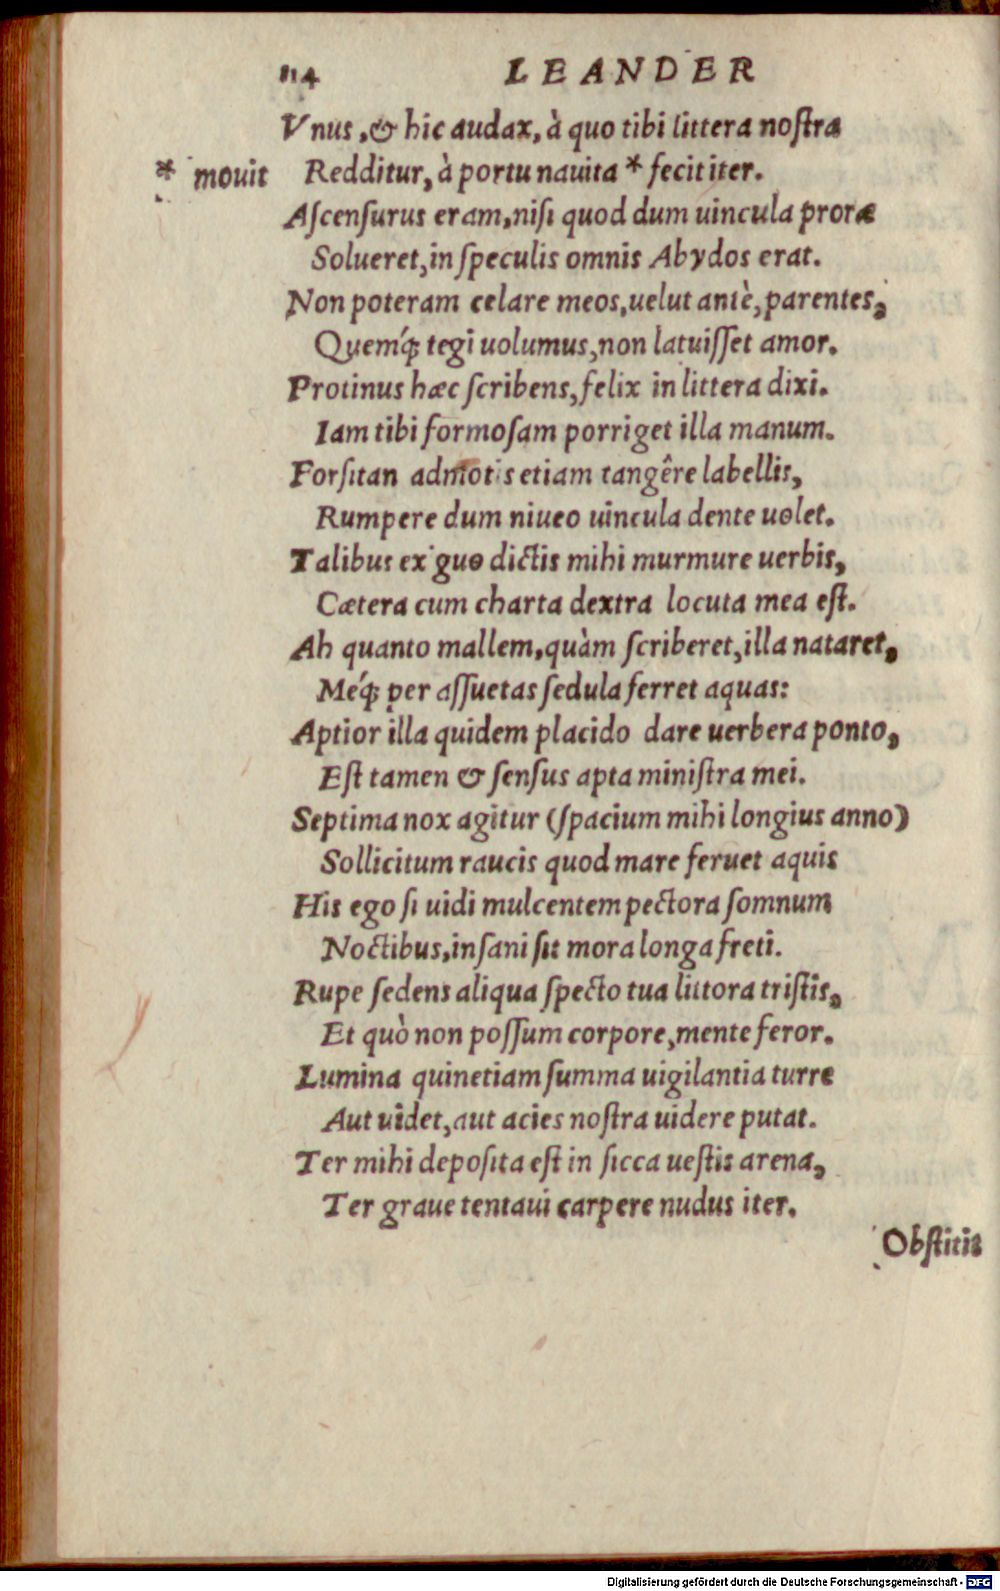 114 LEANDER
Vnus, & hic audax, à quo tibi littera noſtra
* movit Redditur, à portu nauita * fecit iter.
Aſcenſurus eram, niſi quod dum uincula proræ
Solueret, in ſpeculis omnis Abydos erat.
Non poteram celare meos, uelut antè, parentes,
Quemq́; tegi uolumus, non latuiſſet amor.
Protinus hæc ſcribens, felix in littera dixi.
Iam tibi formoſam porriget illa manum.
Forſitan admotis etiam tangêre labellis,
Rumpere dum niueo uincula dente uolet.
Talibus exiguo dictis mihi murmure uerbis,
Cætera cum charta dextra locuta mea eſt.
Ah quanto mallem, quàm ſcriberet, illa nataret,
Meq́; per aſſuetas ſedula ferret aquas:
Aptior illa quidem placido dare uerbera ponto,
Eſt tamen & ſenſus apta miniſtra mei.
Septima nox agitur (ſpacium mihi longius anno)
Sollicitum raucis quod mare feruet aquis
His ego ſi uidi mulcentem pectora ſomnum
Noctibus, inſani ſit mora longa freti.
Rupe ſedens aliqua ſpecto tua littora triſtis,
Et quò non poſſum corpore, mente feror.
Lumina quinetiam ſumma uigilantia turre
Aut uidet, aut acies noſtra uidere putat.
Ter mihi depoſita eſt in ſicca ueſtis arena,
Ter graue tentaui carpere nudus iter.
Obſtitit
Digitalisierung gefördert durch die Deutsche Forschungsgemeinschaft - DFG